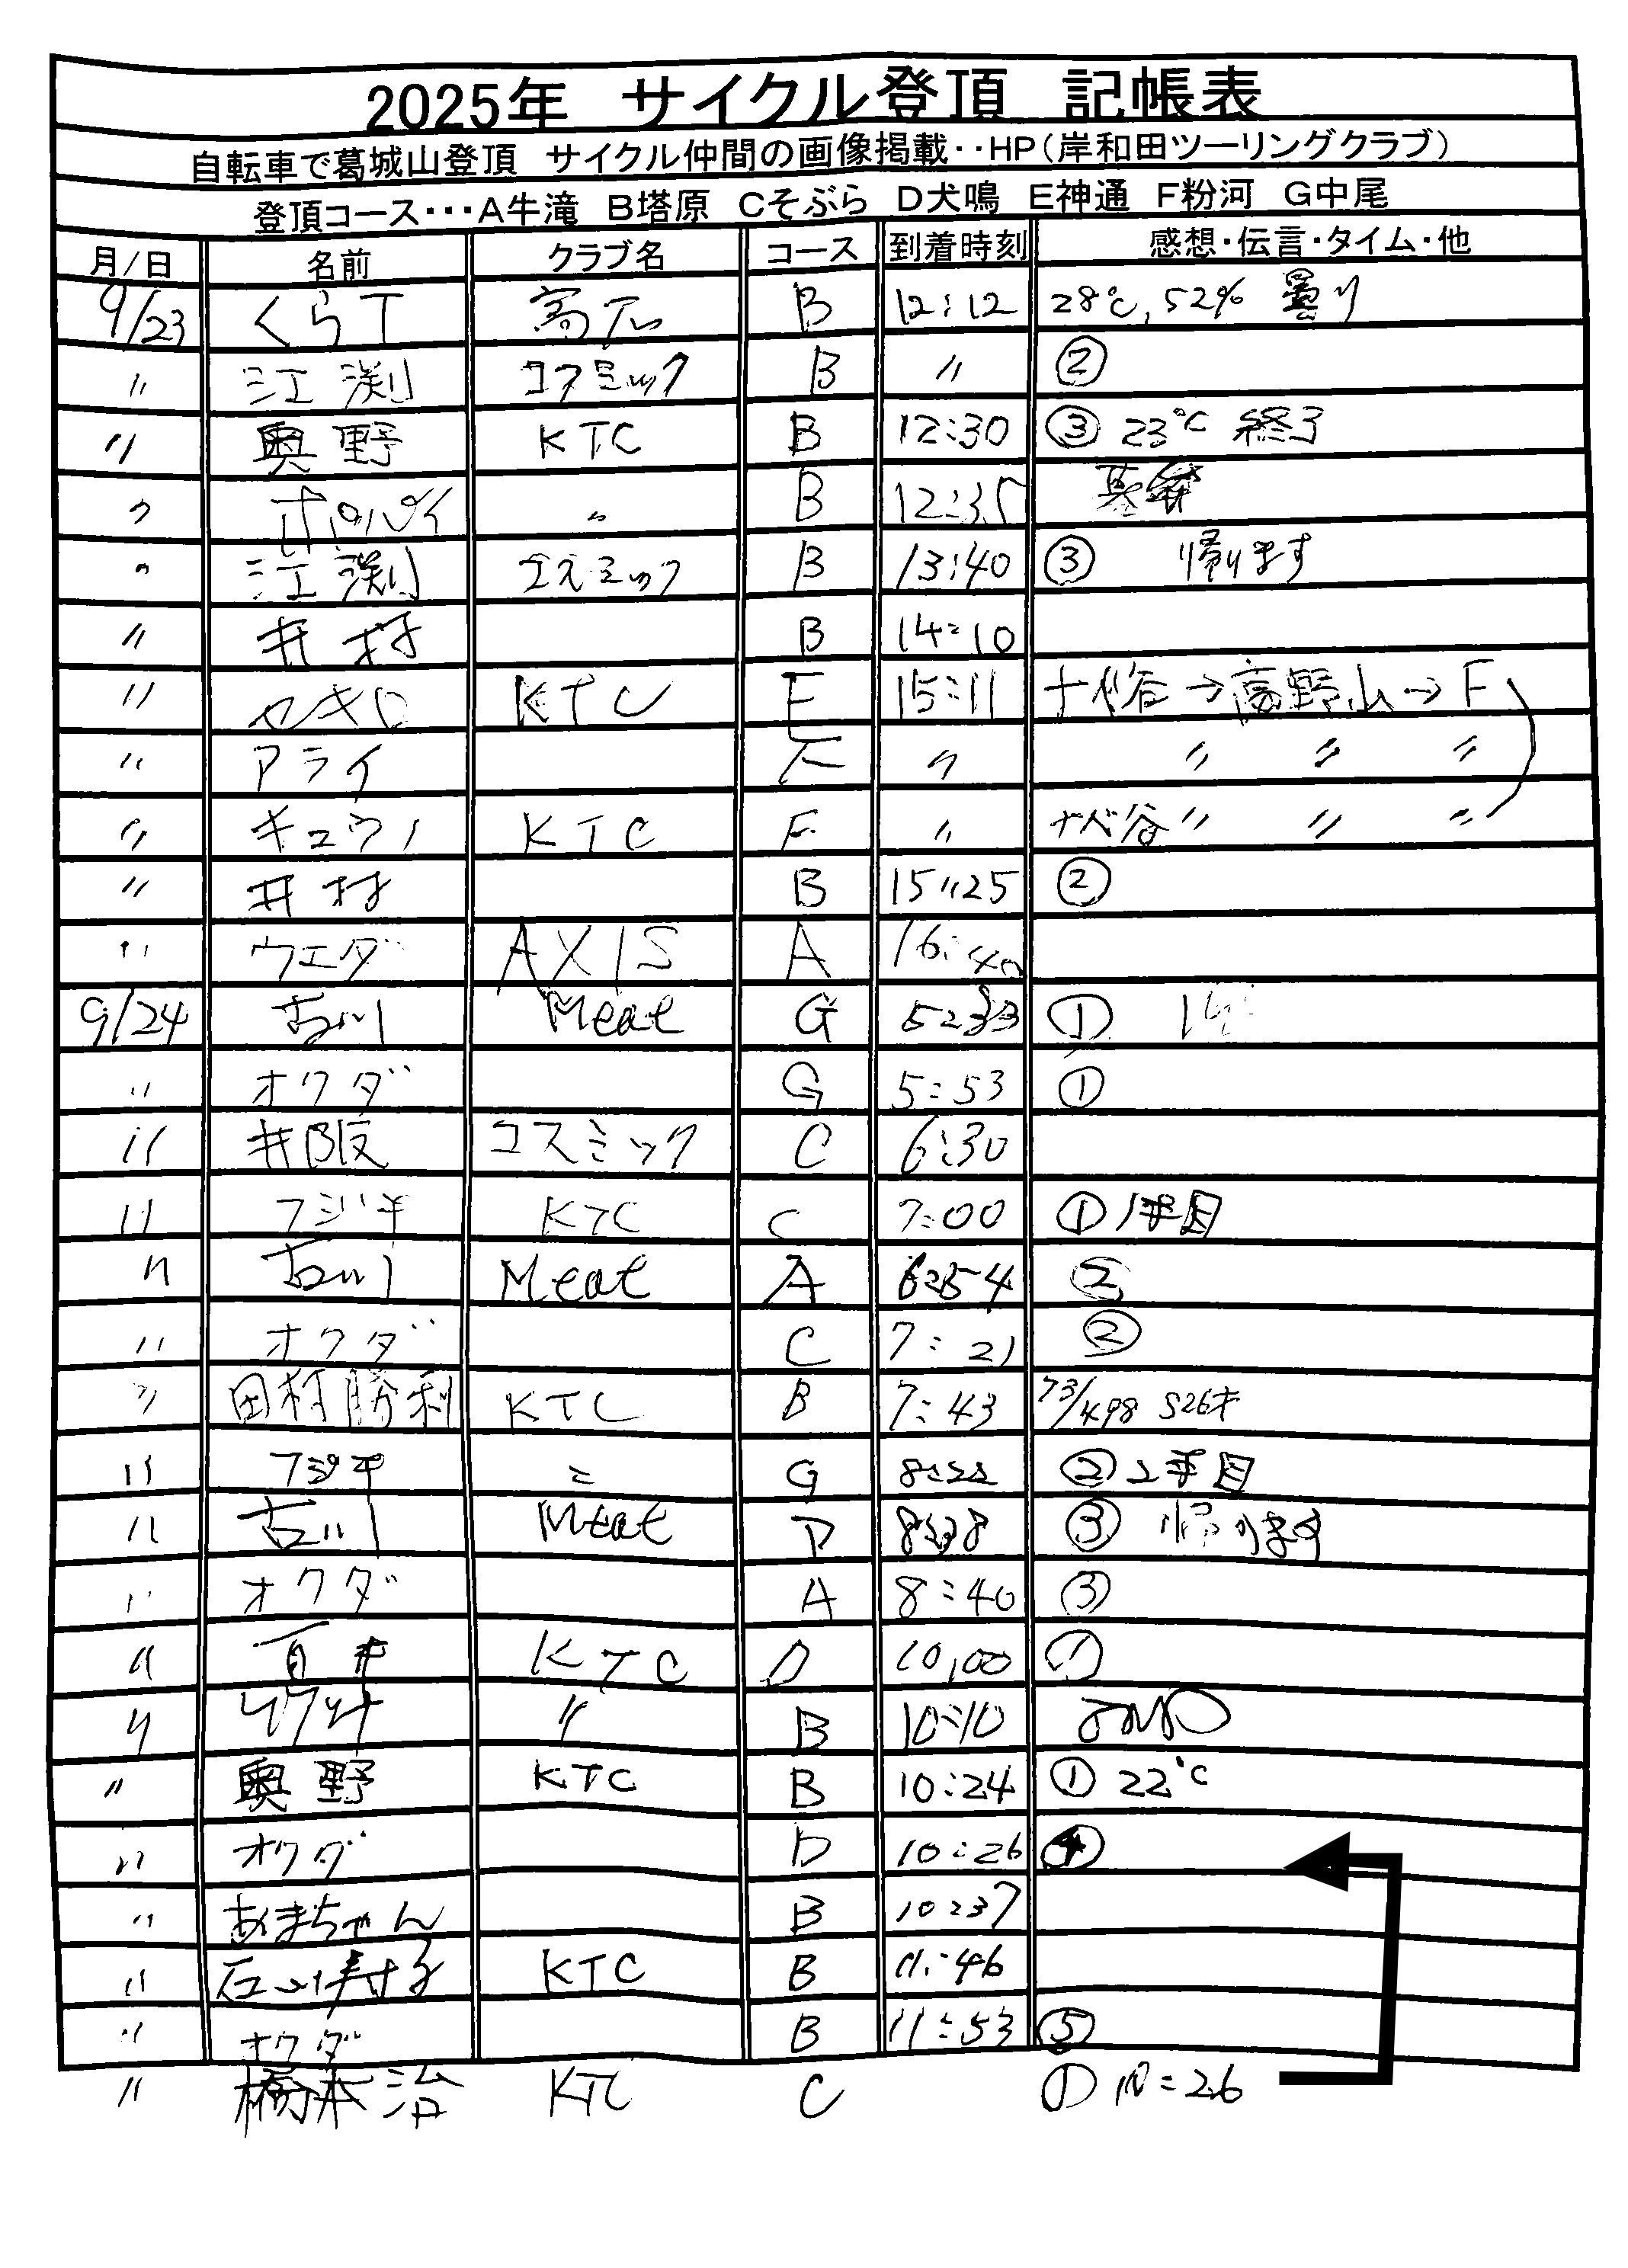 2025年　サイクル登頂　記帳表
自転車で葛城山登頂　サイクル仲間の画像掲載‥HP(岸和田ツーリングクラブ)
登頂コース･･･A牛滝　B塔原　Cそぶら　D犬鳴　E神通　F粉河　G中尾
月/日 名前 クラブ名 コース 到着時刻 感想・伝言・タイム・他
9/23 くらT 高石 B 12:12 28℃, 52% 曇り
〃 江渕 コスミック B 〃 ②
〃 奥野 KTC B 12:30 ③ 23℃ 終了
〃 ポパイ 〃 B 12:35
〃 江渕 コスミック B 13:40 ③ 帰ります
〃 井村 B 14:10
〃 セキロ KTC F 15:11 ナベ谷→高野山→F
〃 アライ F 〃 〃 〃 〃
〃 キュウノ KTC F 〃 ナベ谷 〃 〃 〃
〃 井村 B 15:25 ②
〃 ウエダ AXIS A 16:40
9/24 古川 Meat G 5:33 ①
〃 オクダ G 5:53 ①
〃 井阪 コスミック C 6:30
〃 フジキ KTC C 7:00 ①
〃 古川 Meat A 6:54 ②
〃 オクダ C 7:21 ②
〃 田村勝利 KTC B 7:43 73/498 S26才
〃 フジキ 〃 G 8:22 ②
〃 古川 Meat D 8:38 ③ 帰ります
〃 オクダ A 8:40 ③
〃 百井 KTC D 10,00 ①
〃 〃 B 10:10
〃 奥野 KTC B 10:24 ① 22℃
〃 オクダ D 10:26 ④
〃 あまちゃん B 10:37
〃 石山寿子 KTC B 11:46
〃 オクダ B 11:53 ⑤
〃 橋本治 KTC C ① 10:26